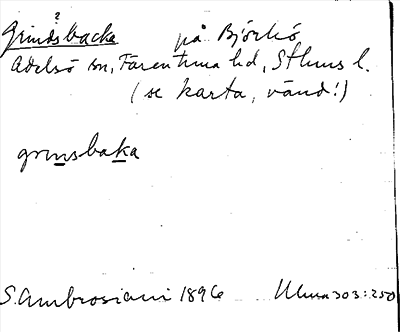 ?
Grindsbacka på Björkö
Adelsö sn, Färentuna hd, Sthlms l.
(se karta, vänd!)
grinsbaka
S. Ambrosiani 1896 Ulma 303:250